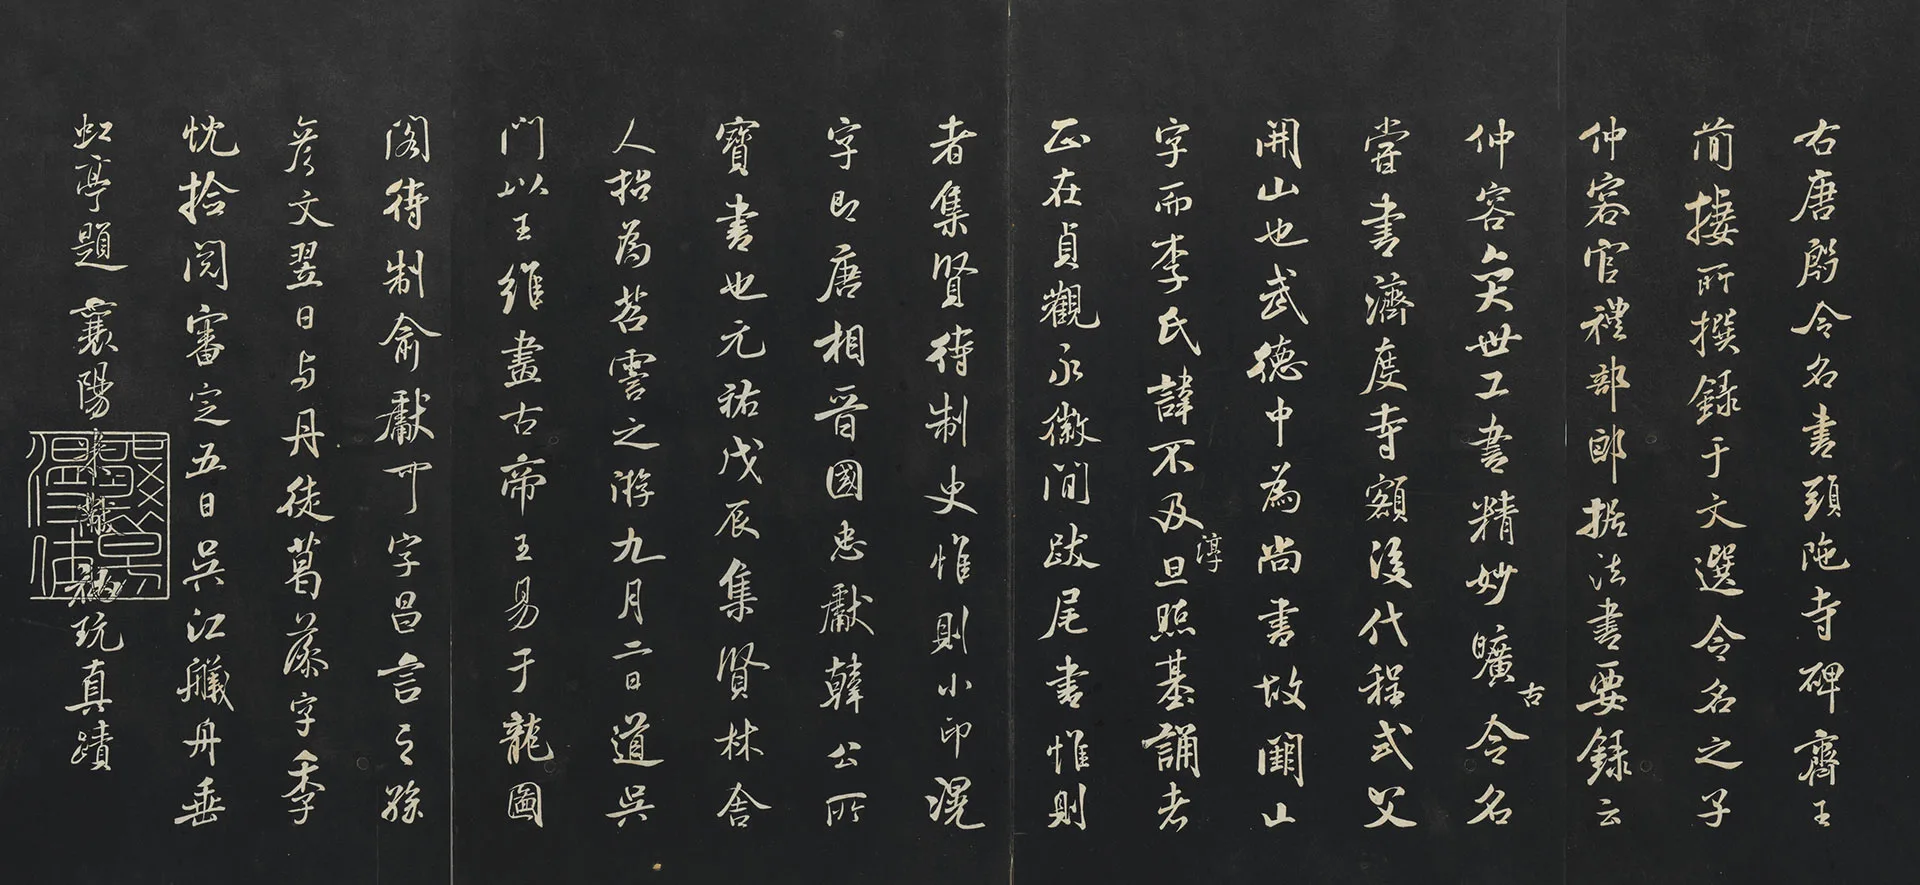 右唐殷令名書頭陁寺碑齊王
簡棲所撰錄于文選令名之子
仲容官禮部郎据法書要錄云
仲容奕世工書精妙曠古令名
嘗書濟度寺額後代程式父
開山也武德中為尚書故闕山
字而李氏諱不及淳旦照基誦者
正在貞觀永徽間跋尾書惟則
者集賢待制史惟則小印滉
字即唐相晉國忠獻韓公所
寶書也元祐戊辰集賢林舍
人招為苕霅之游九月二日道吳
門以王維畫古帝王易于龍圖
閣待制俞獻可字昌言之孫
彥文翌日与丹徒葛藻字季
忱拾閱審定五日吳江艤舟垂
虹亭題 襄陽米黻秘玩真蹟